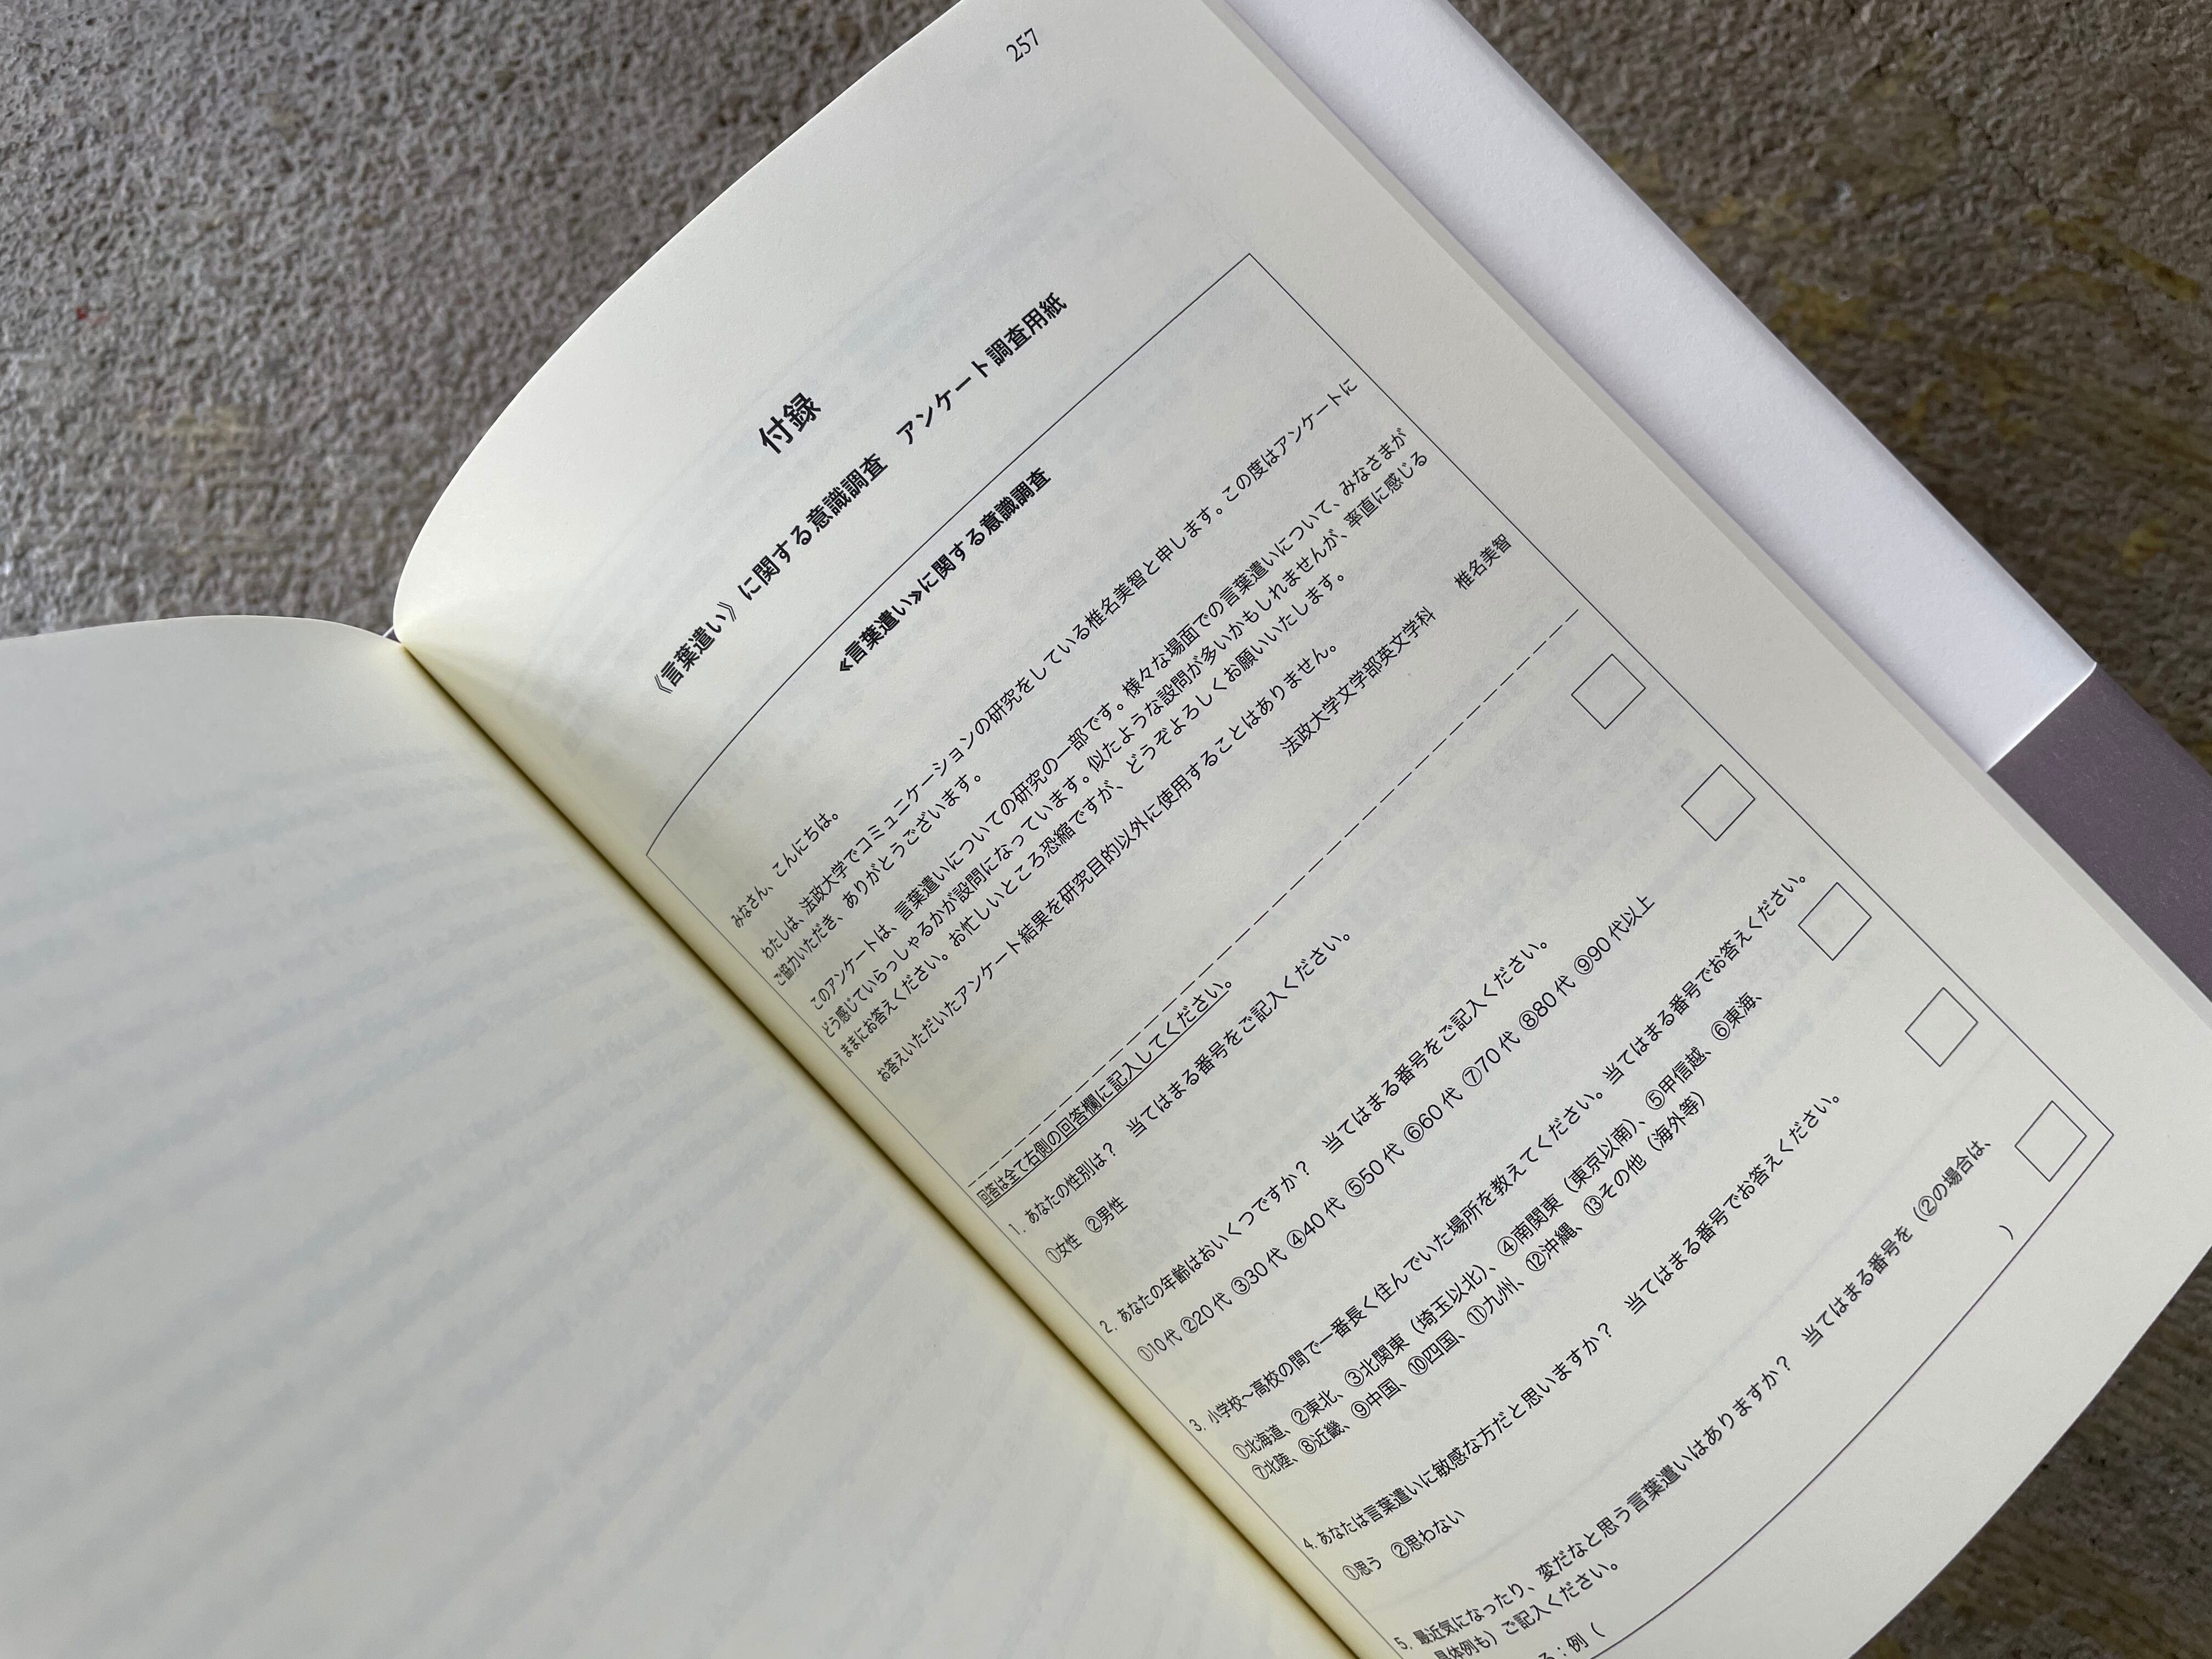 257
付録
《言葉遣い》に関する意識調査　アンケート調査用紙
≪言葉遣い≫に関する意識調査
みなさん、こんにちは。
わたしは、法政大学でコミュニケーションの研究をしている椎名美智と申します。この度はアンケートに
ご協力いただき、ありがとうございます。
このアンケートは、言葉遣いについての研究の一部です。様々な場面での言葉遣いについて、みなさまが
どう感じていらっしゃるかが設問になっています。似たような設問が多いかもしれませんが、率直に感じる
ままにお答えください。お忙しいところ恐縮ですが、どうぞよろしくお願いいたします。
お答えいただいたアンケート結果を研究目的以外に使用することはありません。
法政大学文学部英文学科　椎名美智
回答は全て右側の回答欄に記入してください。
1. あなたの性別は？　当てはまる番号をご記入ください。
①女性　②男性
2. あなたの年齢はおいくつですか？　当てはまる番号をご記入ください。
①10代 ②20代 ③30代 ④40代 ⑤50代 ⑥60代 ⑦70代 ⑧80代 ⑨90代以上
3. 小学校～高校の間で一番長く住んでいた場所を教えてください。当てはまる番号でお答えください。
①北海道、②東北、③北関東（埼玉以北）、④南関東（東京以南）、⑤甲信越、⑥東海、
⑦北陸、⑧近畿、⑨中国、⑩四国、⑪九州、⑫沖縄、⑬その他（海外等）
4. あなたは言葉遣いに敏感な方だと思いますか？　当てはまる番号でお答えください。
①思う　②思わない
5. 最近気になったり、変だなと思う言葉遣いはありますか？　当てはまる番号を（②の場合は、
具体例も）ご記入ください。
る：例（　）